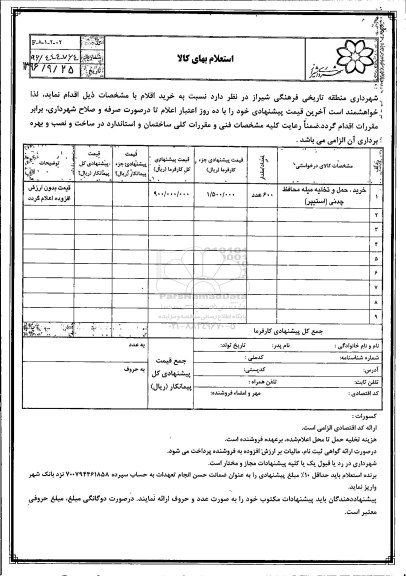 استعلام بهای کالا
۱۳۹۶/۹/۲۵
شهرداری منطقه تاریخی فرهنگی شیراز در نظر دارد نسبت به خرید اقلام با مشخصات ذیل اقدام نماید، لذا
خواهشمند است آخرین قیمت پیشنهادی خود را با ده روز اعتبار اعلام تا درصورت صرفه و صلاح شهرداری، برابر
مقررات اقدام گردد.ضمناً رعایت کلیه مشخصات فنی و مقررات کلی ساختمان و استاندارد در ساخت و نصب و بهره
برداری آن الزامی می باشد .
مشخصات کالای درخواستی قیمت پیشنهادی جزء کارفرما (ریال) قیمت پیشنهادی کل کارفرما (ریال) قیمت پیشنهادی جزء پیمانکار (ریال) قیمت پیشنهادی کل پیمانکار (ریال) توضیحات
۱ خرید ، حمل و تخلیه میله محافظ چدنی (استیپر) ۶۰۰ عدد ۱/۵۰۰/۰۰۰ ۹۰۰/۰۰۰/۰۰۰ قیمت بدون ارزش افزوده اعلام گردد
۲
۳
۴
۵
۶
۷
۸
۹
ParsNamadData
۰۲۱-۸۸۳۴۹۶۷۰-۵
جمع کل پیشنهادی کارفرما
نام و نام خانوادگی : نام پدر: تاریخ تولد:
شماره شناسنامه: کدملی :
آدرس: کدپستی:
تلفن ثابت: تلفن همراه :
کد اقتصادی : مهر و امضاء فروشنده:
جمع قیمت پیشنهادی کل پیمانکار (ریال)
به عدد
به حروف
کسورات :
ارائه کد اقتصادی الزامی است.
هزینه تخلیه حمل تا محل اعلام‌شده، برعهده فروشنده است.
درصورت ارائه گواهی ثبت نام، مالیات بر ارزش افزوده به فروشنده پرداخت می شود.
شهرداری در رد یا قبول یک یا کلیه پیشنهادات مجاز و مختار است.
برنده استعلام باید حداقل ۱۰٪ مبلغ پیشنهادی را به عنوان ضمانت حسن انجام تعهدات به حساب سپرده ۷۰۰۷۹۴۴۶۱۸۵۸ نزد بانک شهر
واریز نماید.
پیشنهاددهندگان باید پیشنهادات مکتوب خود را به صورت عدد و حروف ارائه نمایند. درصورت دوگانگی مبلغ، مبلغ حروفی
معتبر است.